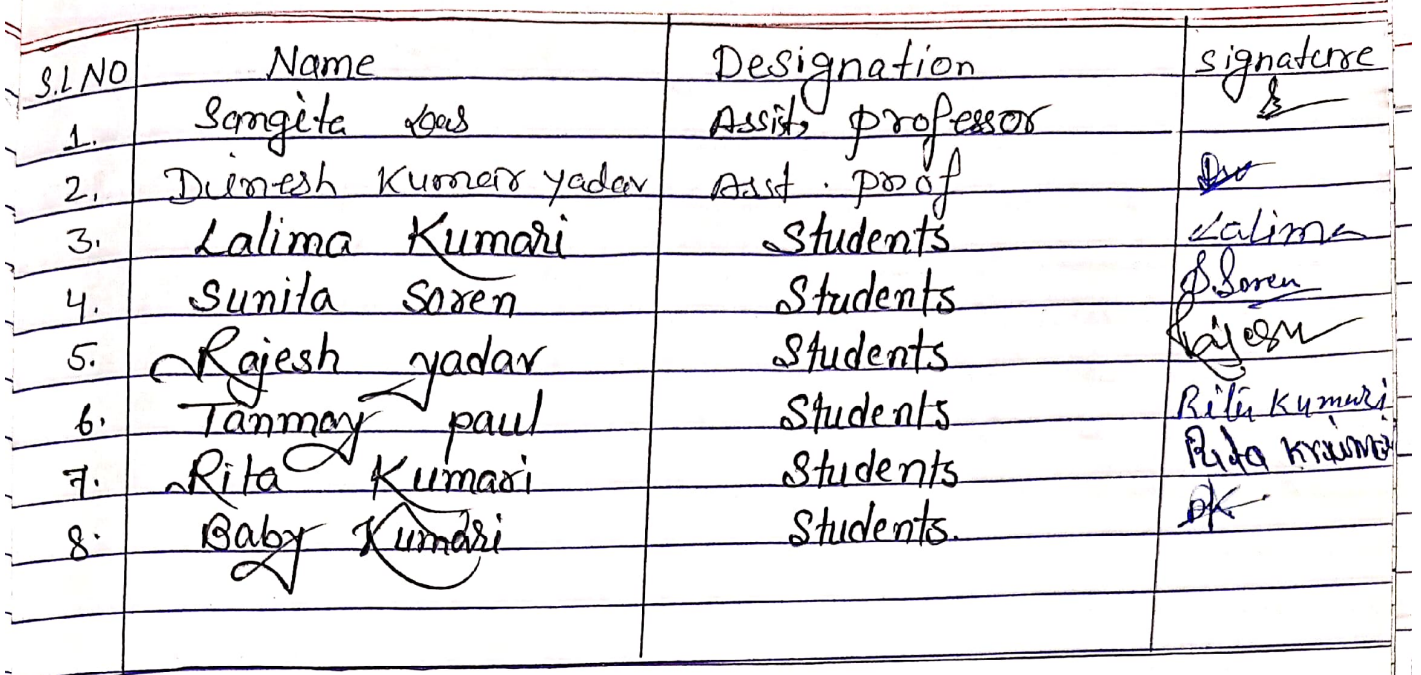 S.L NO Name Designation signature
1. Sangita Das Assit. professor
2. Dinesh Kumar yadav Asst. prof
3. Lalima Kumari Students Lalima
4. Sunila Soren Students S. Soren
5. Rajesh yadav Students Rajesh
6. Tanmay paul Students Ritu Kumari
7. Rita Kumari Students Rita
8. Baby Kumari Students.